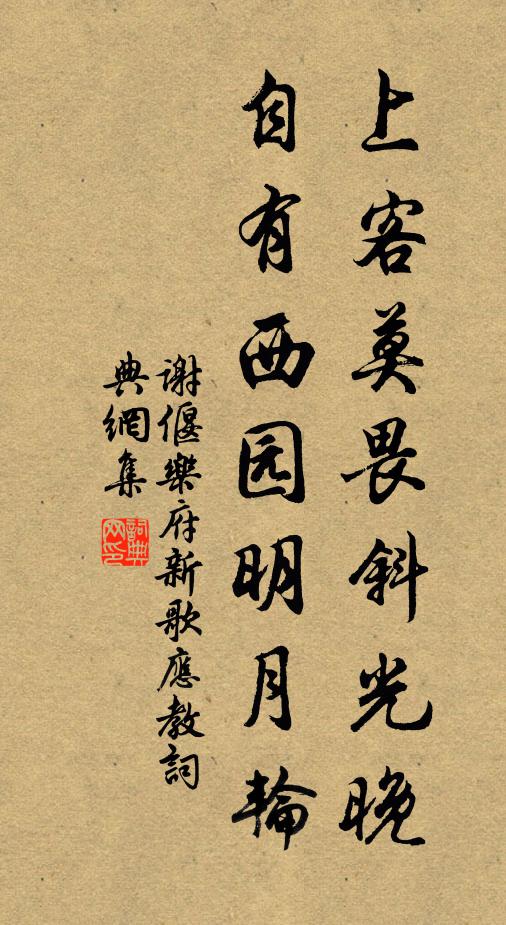 上客莫畏斜光晚
自有西园明月輪
谢偃樂府新歌應教詞
典網集
詞典網印